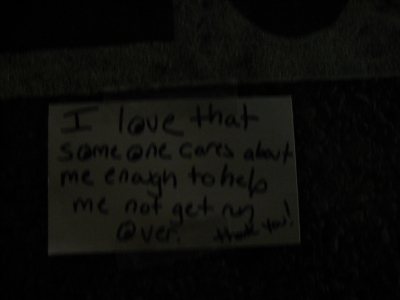 I love that
someone cares about
me enough to help
me not get run
over. thank you!